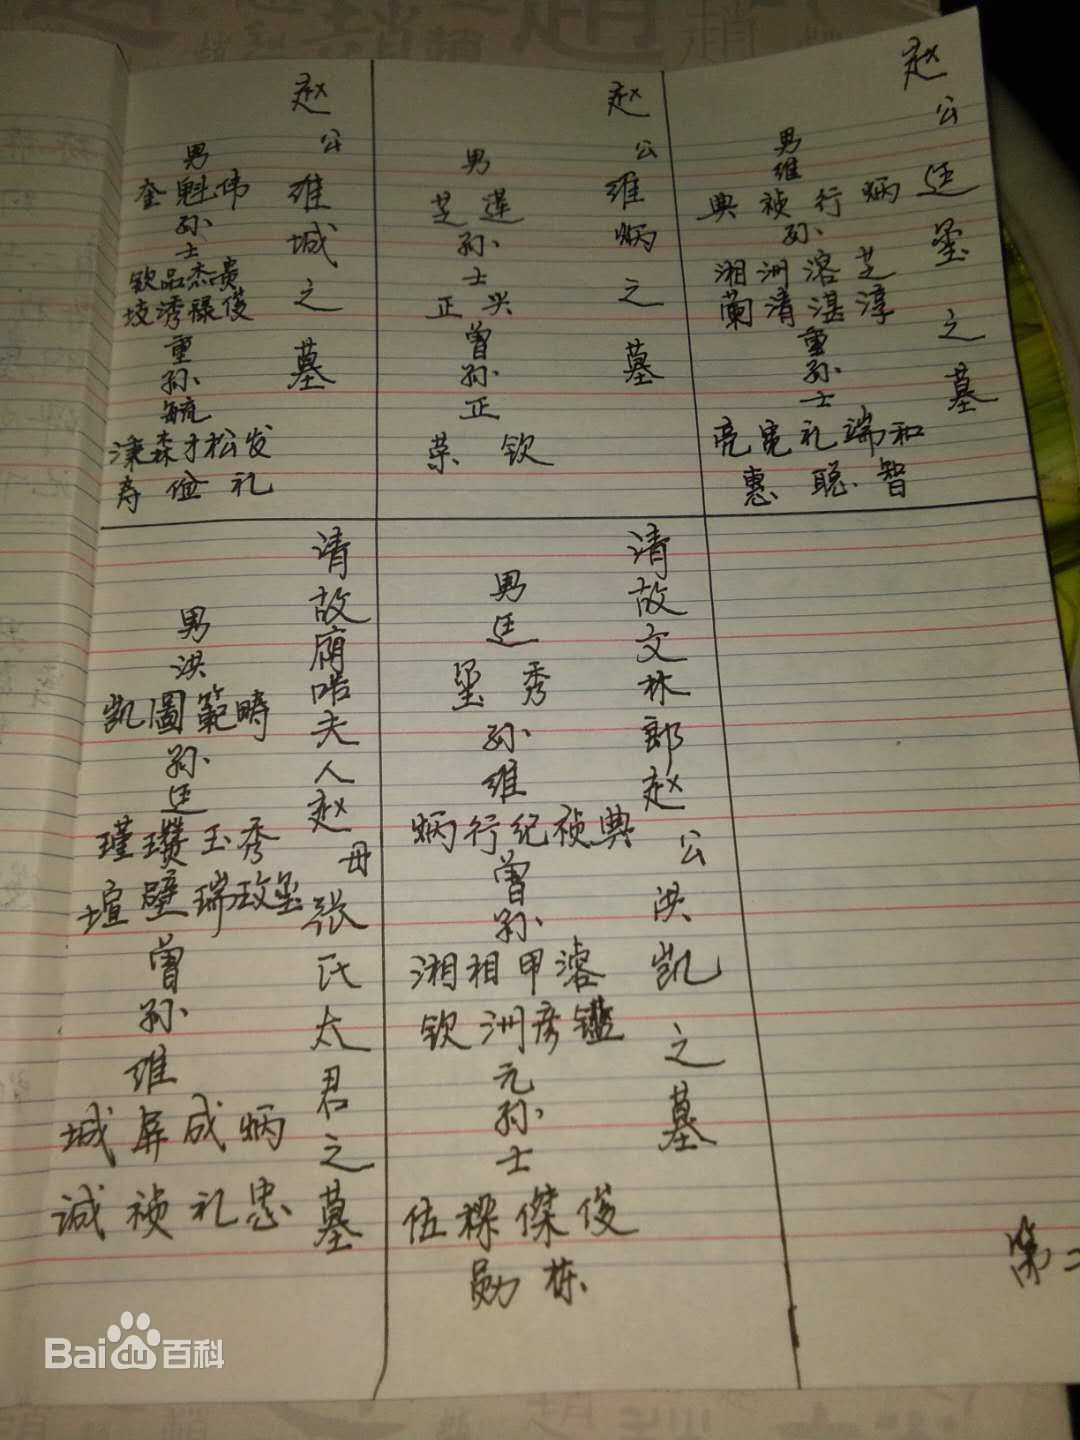 赵公廷玺之墓
男
维
典祯行炳
孙
湘洲溶芝
蘭清湛淳
重
孙
士
亮宽礼端和
惠聪智
赵公维炳之墓
男
芝莲
孙
士
正兴
曾
孙
正
荣钦
赵公维城之墓
男
奎魁伟
孙
士
钦品杰贵
技秀禄俊
重
孙
毓
森才松发
寿俭礼
清故文林郎赵公洪凯之墓
男
廷
玺秀
孙
维
炳行纪祯典
曾
孙
湘相甲溶
钦洲彦鑑
元
孙
士
伍樑傑俊
勋栋
清故夫人赵母张氏太君之墓
男
洪
凯圖範畴
孙
廷
瑾瓒玉秀
瑄壁瑞玫玺
曾
孙
维
城屏成炳
诚祯礼忠
第二
Baidu百科